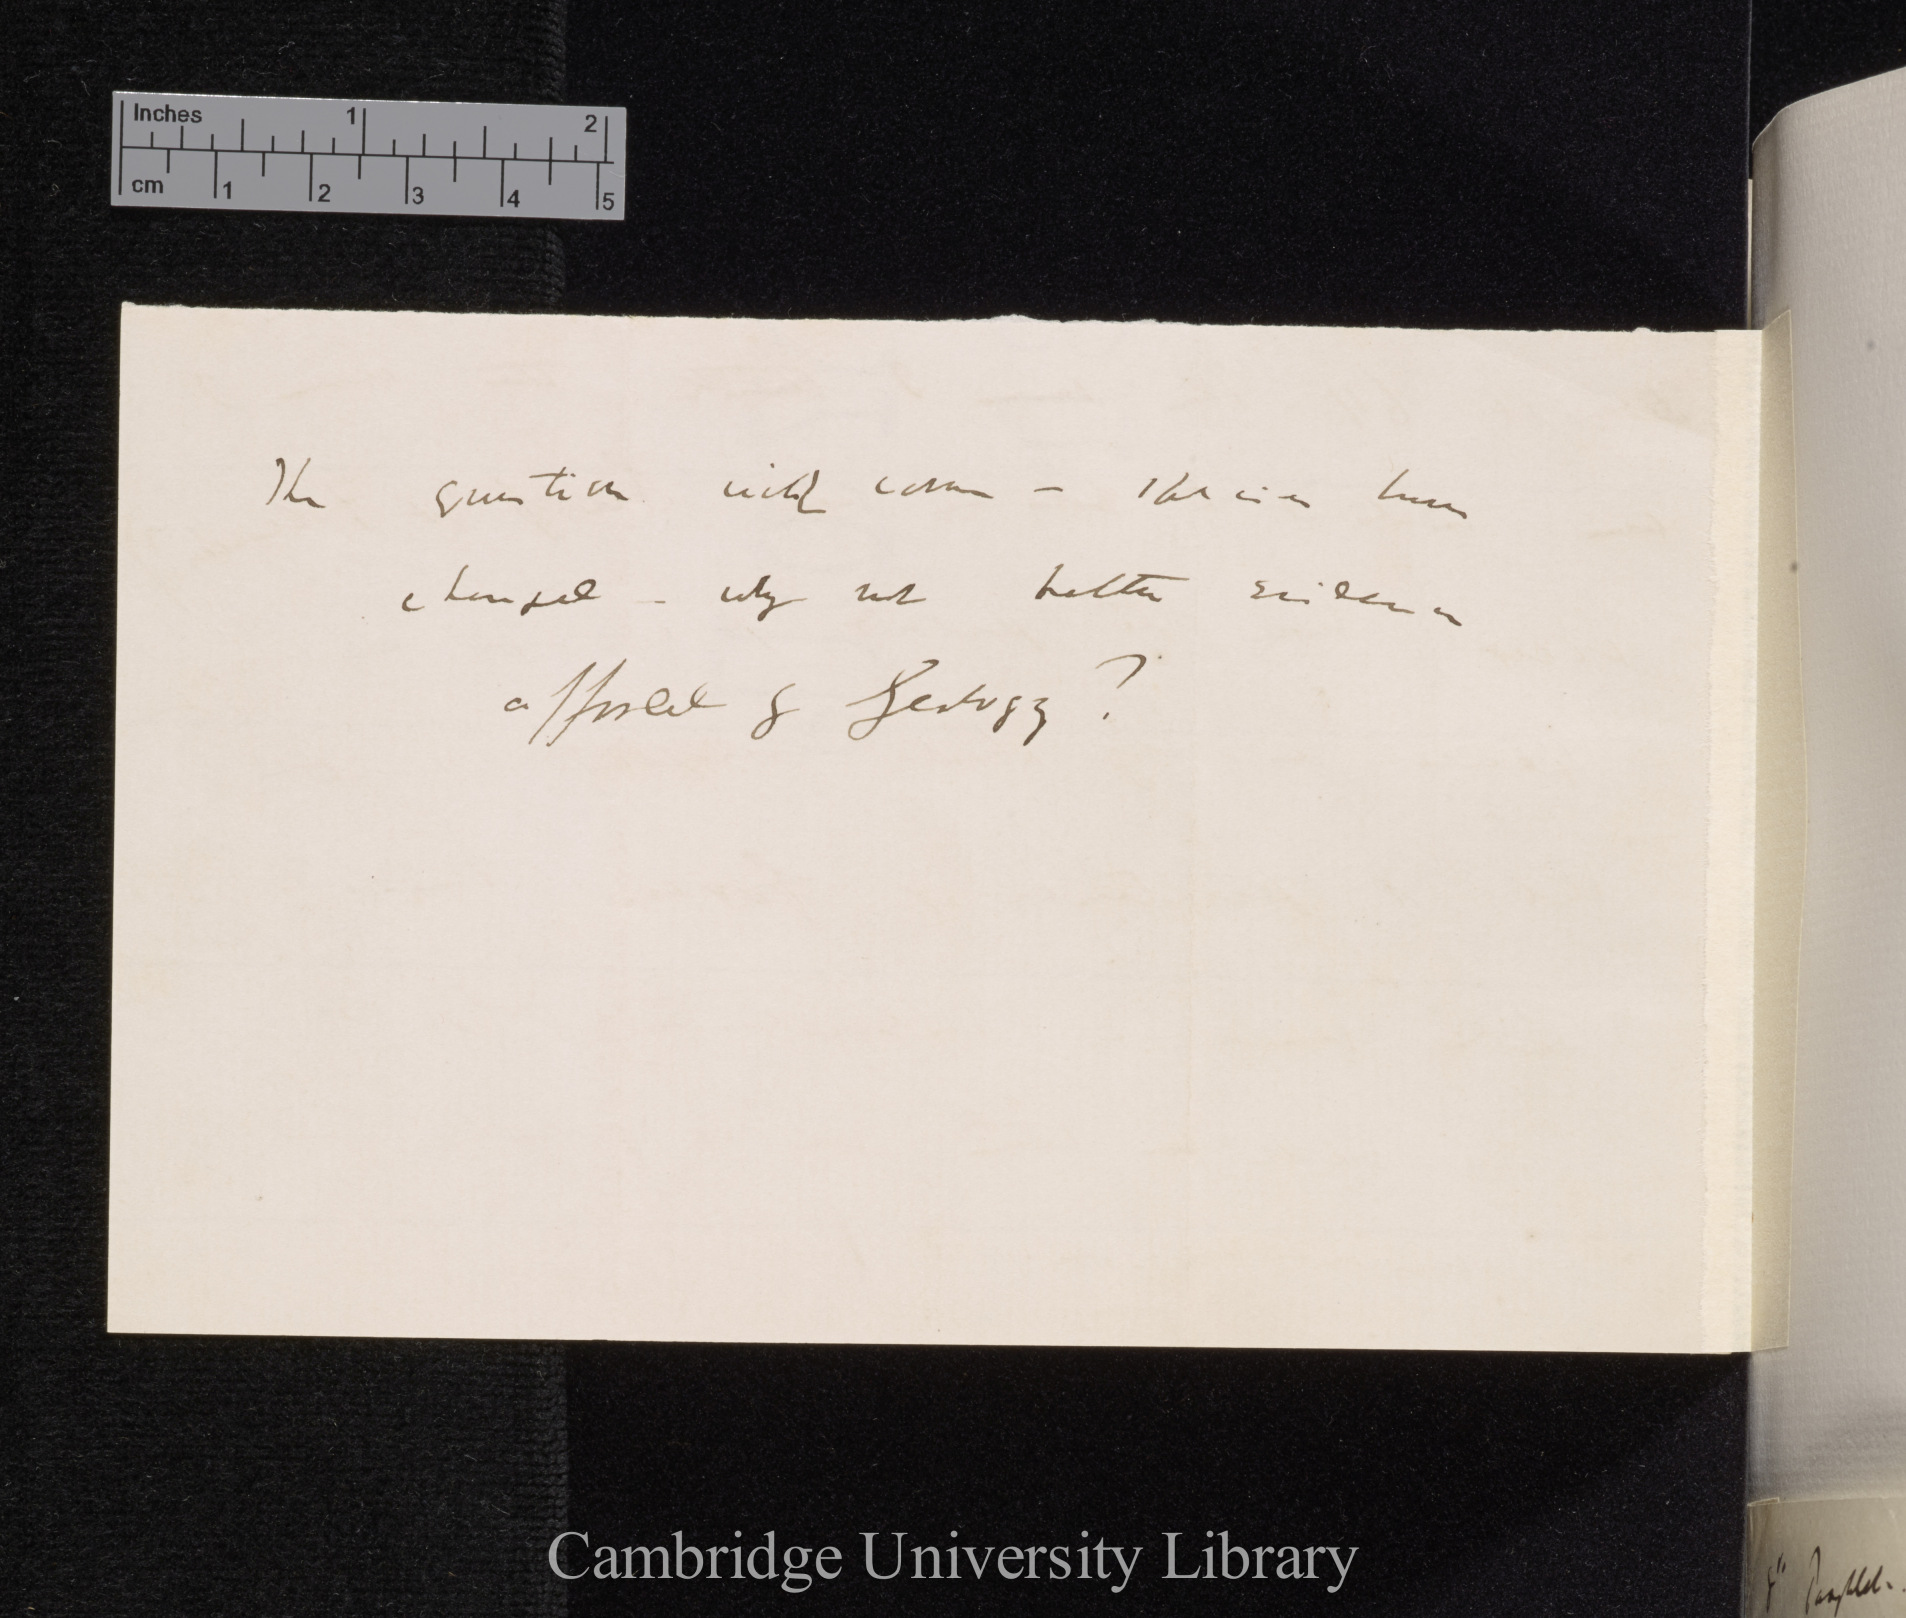 Inches 1 2
cm 1 2 3 4 5
The question will come – Species been
changed – why not better evidence
afforded by Geology?
Cambridge University Library